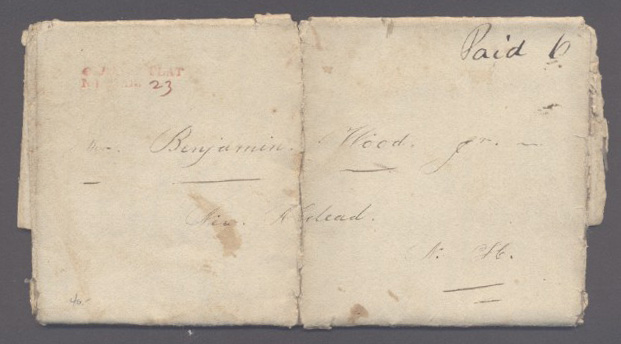 Paid 6
23
Mr. Benjamin Wood. jr.
New Alstead.
N. H.